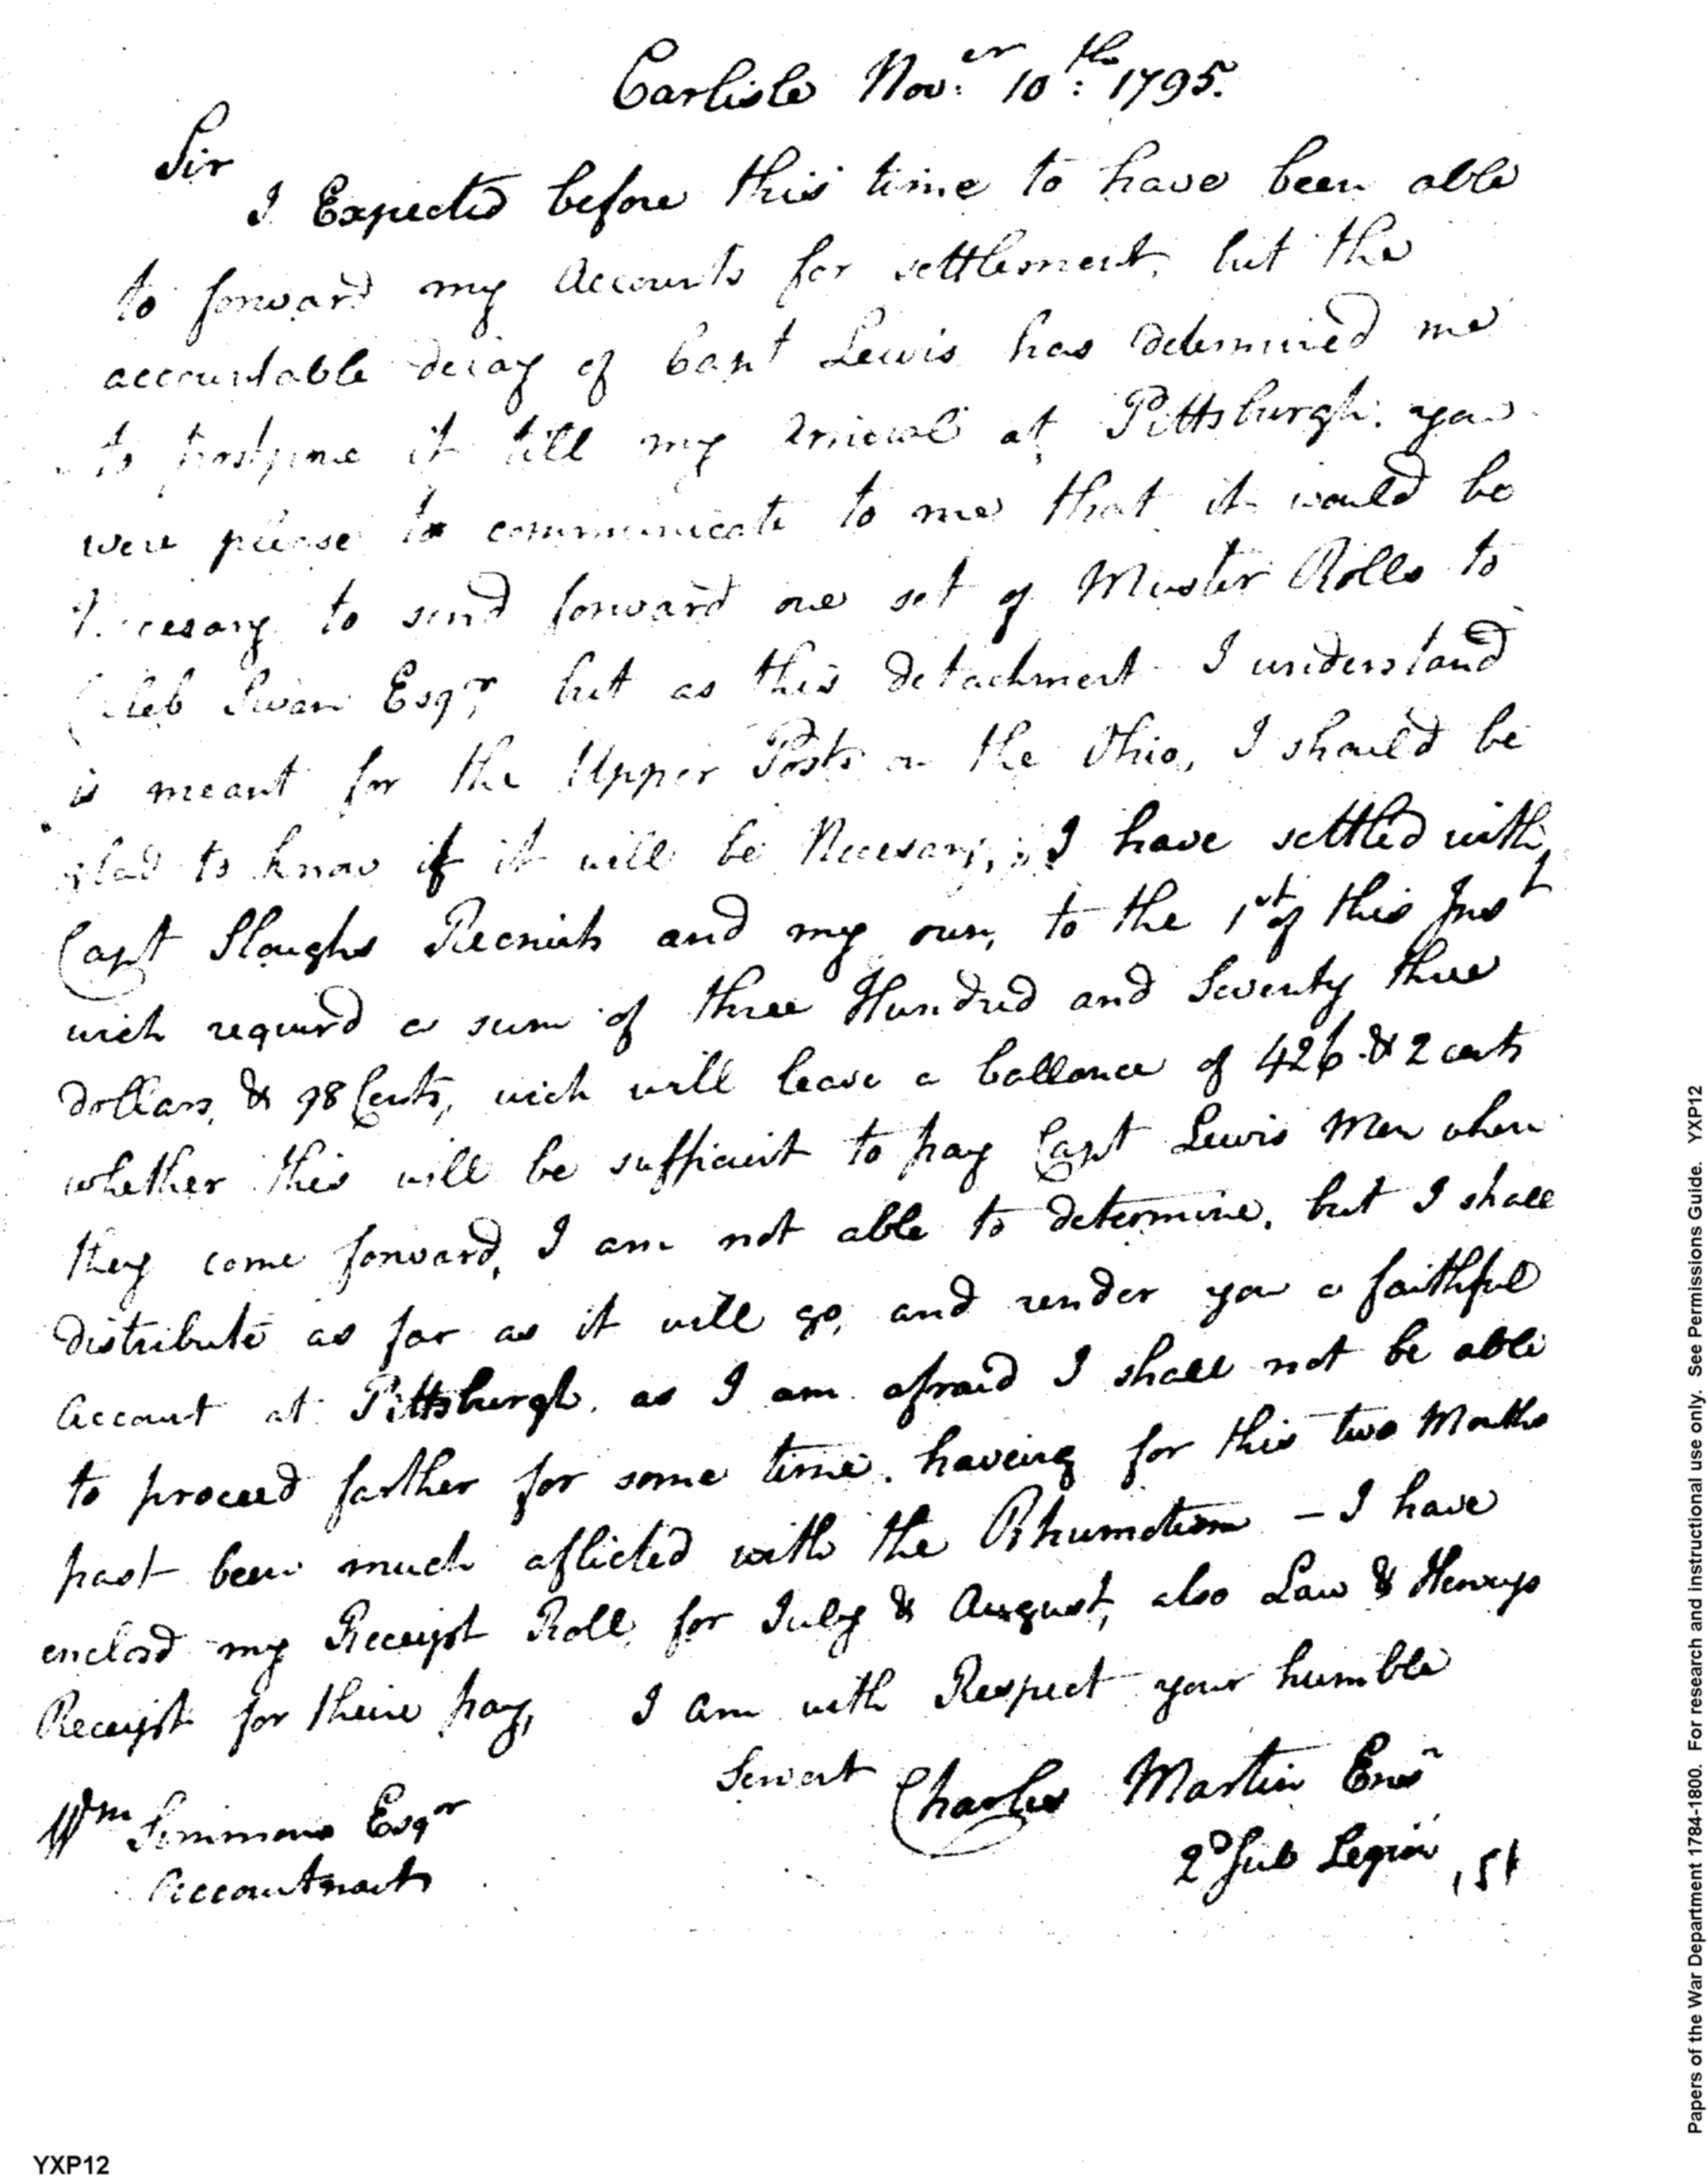 Carlisle Nov.er 10:th 1795.
Sir
I Expected before this time to have been able
to forward my Accounts for settlement, but the
accountable delay of Capt Lewis has determined me
to postpone it till my Arrival at Pittsburgh. you
were please to communicate to me that it would be
Necesary to send forward one set of Muster Rolls to
Caleb Swan Esqr, but as this detachment I understand
is meant for the Upper Posts on the Ohio, I should be
glad to know if it will be Necesary, I have settled with
Capt Sloughs Recruits and my own, to the 1st of this Inst
wich requird a sum of three Hundred and Seventy three
dollars, & 98 Cents, wich will leave a ballance of 426 & 2 cents
whether this will be sufficient to pay Capt Lewis Men when
they come forward, I am not able to determine, but I shall
distribute as far as it will go, and render you a faithful
Account at Pittsburgh. as I am afraid I shall not be able
to proceed farther for some time. haveing for this two Months
past been much aflicted with the Rhumatism - I have
enclosd my Receipt Roll, for July & August, also Law & Henrys
Receipt for theire pay, I am with Respect your humble
Servant Charles Martin Ensn
Wm Simmons Esqr
2d Sub Legion
Accountant
Papers of the War Department 1784-1800. For research and instructional use only. See Permissions Guide. YXP12
YXP12